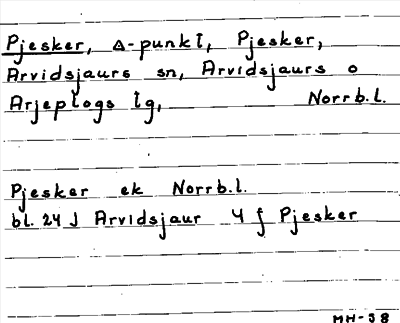 Pjesker, Δ-punkt, Pjesker,
Arvidsjaurs sn, Arvidsjaurs o
Arjeplogs lg, Norrb.l.
Pjesker ek Norrb.l.
bl. 24 J Arvidsjaur 4 f Pjesker
MH-38